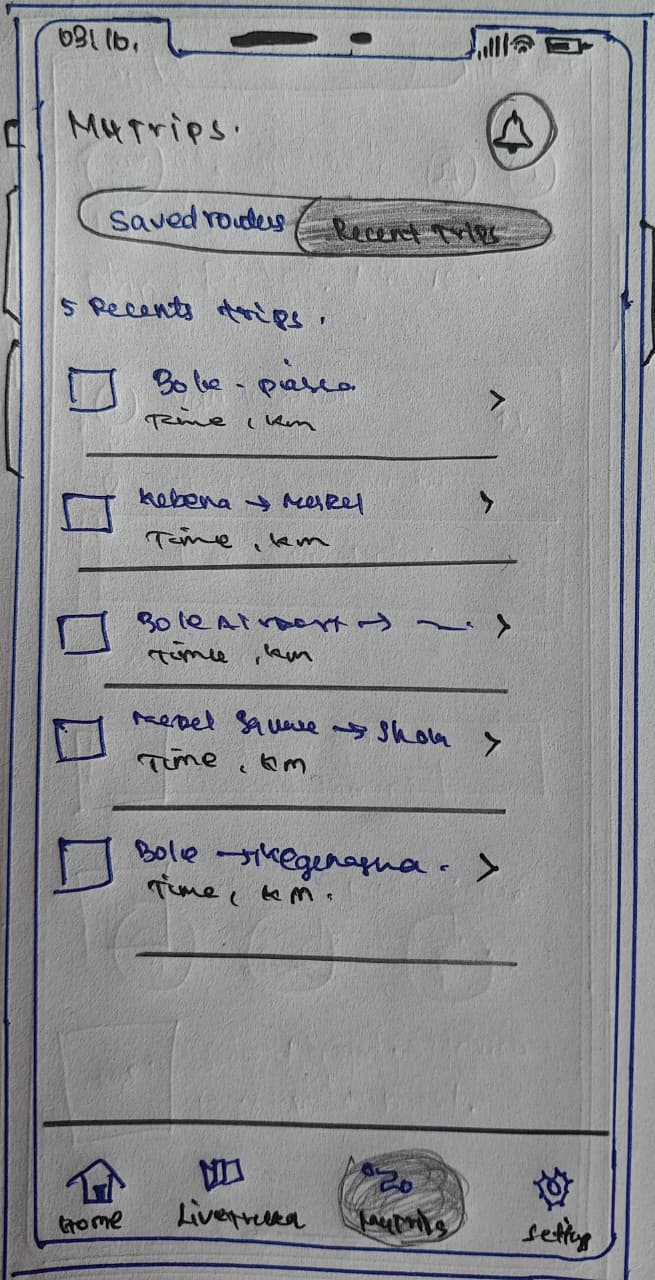 My Trips.
Saved routes Recent Trips
5 Recents trips.
Bole - piassa
Time, km
Kebena → Meskel
Time, km
Bole Airport →
Time, km
Meskel Square → Shola
Time, km
Bole → Megenagna.
Time, km.
Home
My trips
Setting